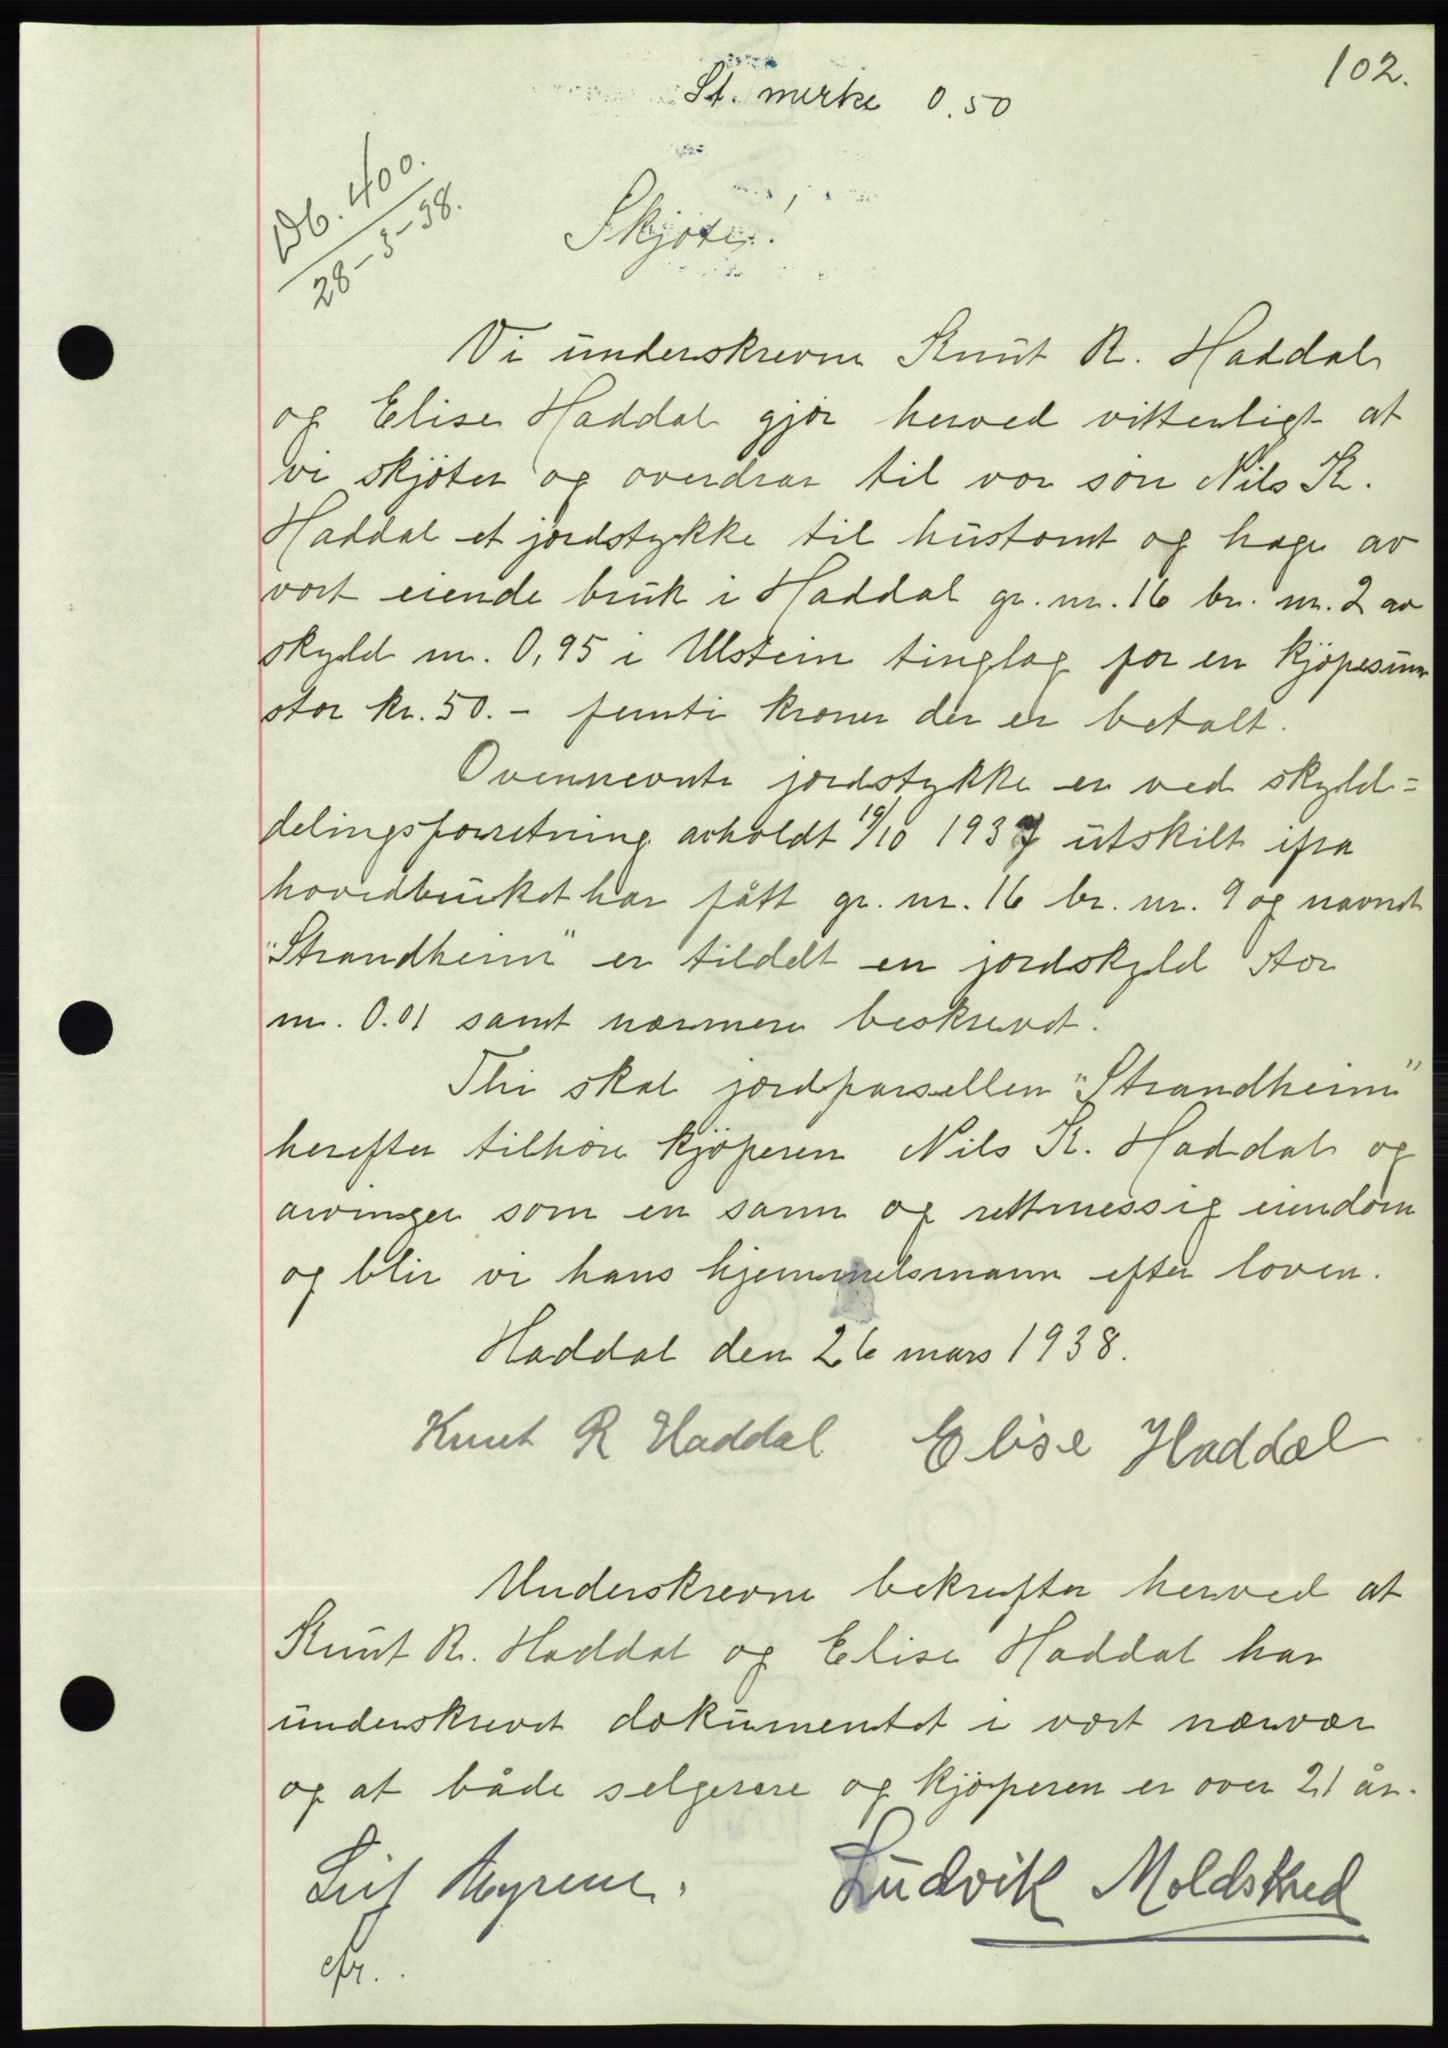 102.
St. merke 0.50
Db. 400.
28-3-38.
Skjöte.
Vi underskrevne Knut R. Haddal
og Elise Haddal gjör herved vitterligt at
vi skjöter og overdrar til vor sön Nils K.
Haddal et jordstykke til hustomt og hage av
vort eiende bruk i Haddal gr. nr. 16 br. nr. 2 av
skyld m. 0,95 i Ulstein tinglag for en kjöpesum
stor kr. 50.- femti kroner der er betalt.
Ovennevnte jordstykke er ved skyld=
delingsforretning avholdt 19/10 1937 utskilt ifra
hovedbruket har fått gr. nr. 16 br. nr. 9 og navnet
"Strandheim" er tildelt en jordskyld stor
m. 0.01 samt nærmere beskrevet.
Thi skal jordparsellen "Strandheim"
herefter tilhöre kjöperen Nils K. Haddal og
arvinger som en sann og rettmessig eiendom
og blir vi hans hjemmelsmann efter loven.
Haddal den 26 mars 1938.
Knut R Haddal Elise Haddal
Underskrevne bekrefter herved at
Knut R. Haddal og Elise Haddal har
underskrevet dokumentet i vort nærvær
og at både selgerere og kjöperen er over 21 år.
Leif Myrene. Ludvik Moldskred